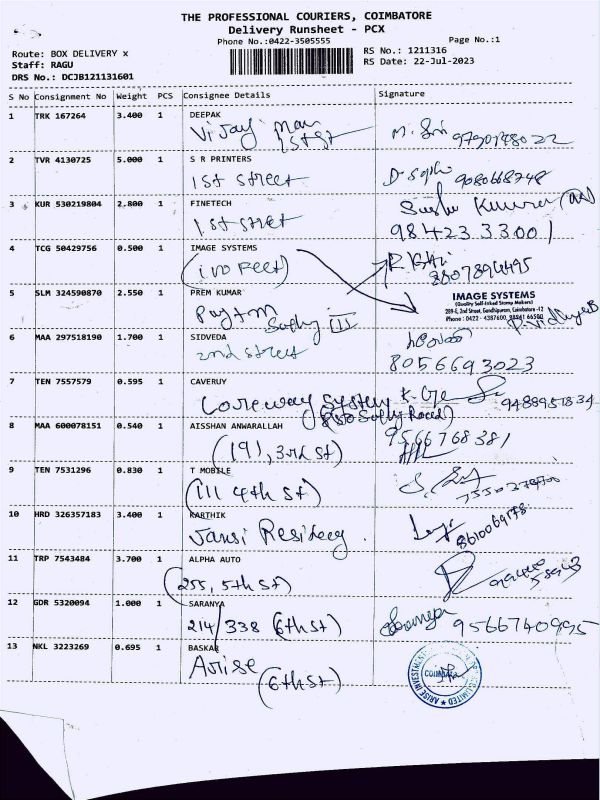 THE PROFESSIONAL COURIERS, COIMBATORE
Delivery Runsheet - PCX
Phone No.:0422-3505555
Page No.:1
Route: BOX DELIVERY x
RS No.: 1211316
Staff: RAGU
RS Date: 22-Jul-2023
DRS No.: DCJB121131601
S No Consignment No Weight PCS Consignee Details Signature
1 TRK 167264 3.400 1 DEEPAK
Vijay
1st St
2 TVR 4130725 5.000 1 S R PRINTERS
1st street 9080668748
3 KUR 530219804 2.800 1 FINETECH
1st street Kumar
98423 33001
4 TCG 50429756 0.500 1 IMAGE SYSTEMS
(100 Feet)
5 SLM 324590870 2.550 1 PREM KUMAR
Paytm
IMAGE SYSTEMS
(Quality Self-Inked Stamp Makers)
289-E, 2nd Street, Gandhipuram, Coimbatore -12
Phone : 0422 - 4387600, 98941 66500
6 MAA 297518190 1.700 1 SIDVEDA
2nd street 8056693023
7 TEN 7557579 0.595 1 CAVERUY
System
8 MAA 600078151 0.540 1 AISSHAN ANWARALLAH
9566768381
(191, 3rd St)
9 TEN 7531296 0.830 1 T MOBILE
(111 4th St)
10 HRD 326357183 3.400 1 KARTHIK
Jansi Residency. 8610069178
11 TRP 7543484 3.700 1 ALPHA AUTO
(255, 5th St)
12 GDR 5320094 1.000 1 SARANYA
214/338 (6th St) Saranya 9566740995
13 NKL 3223269 0.695 1 BASKAR
Arise
(6th St)